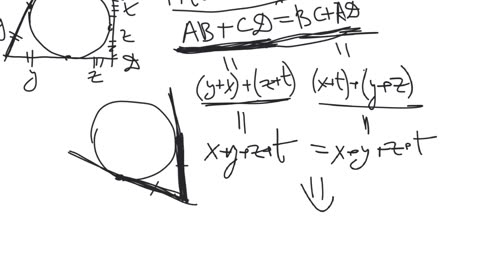 AB+CD=BC+AD
t
z
D
y
z
(y+x)+(z+t) (x+t)+(y+z)
x+y+z+t = x+y+z+t